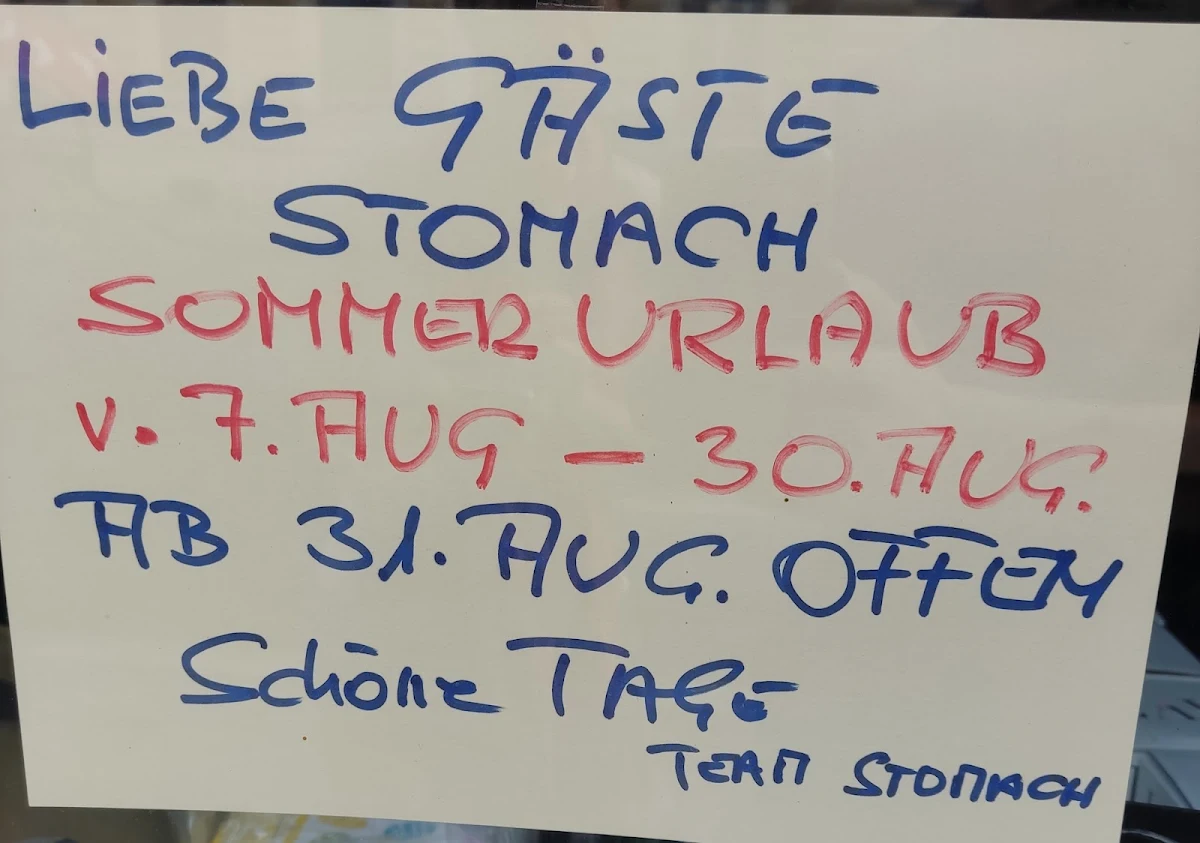 LiEBE GÄSTE
STOMACH
SOMMER URLAUB
v. 7. AUG – 30. AUG.
AB 31. AUG. OFFEN
Schöne TAGE
TEAM STOMACH